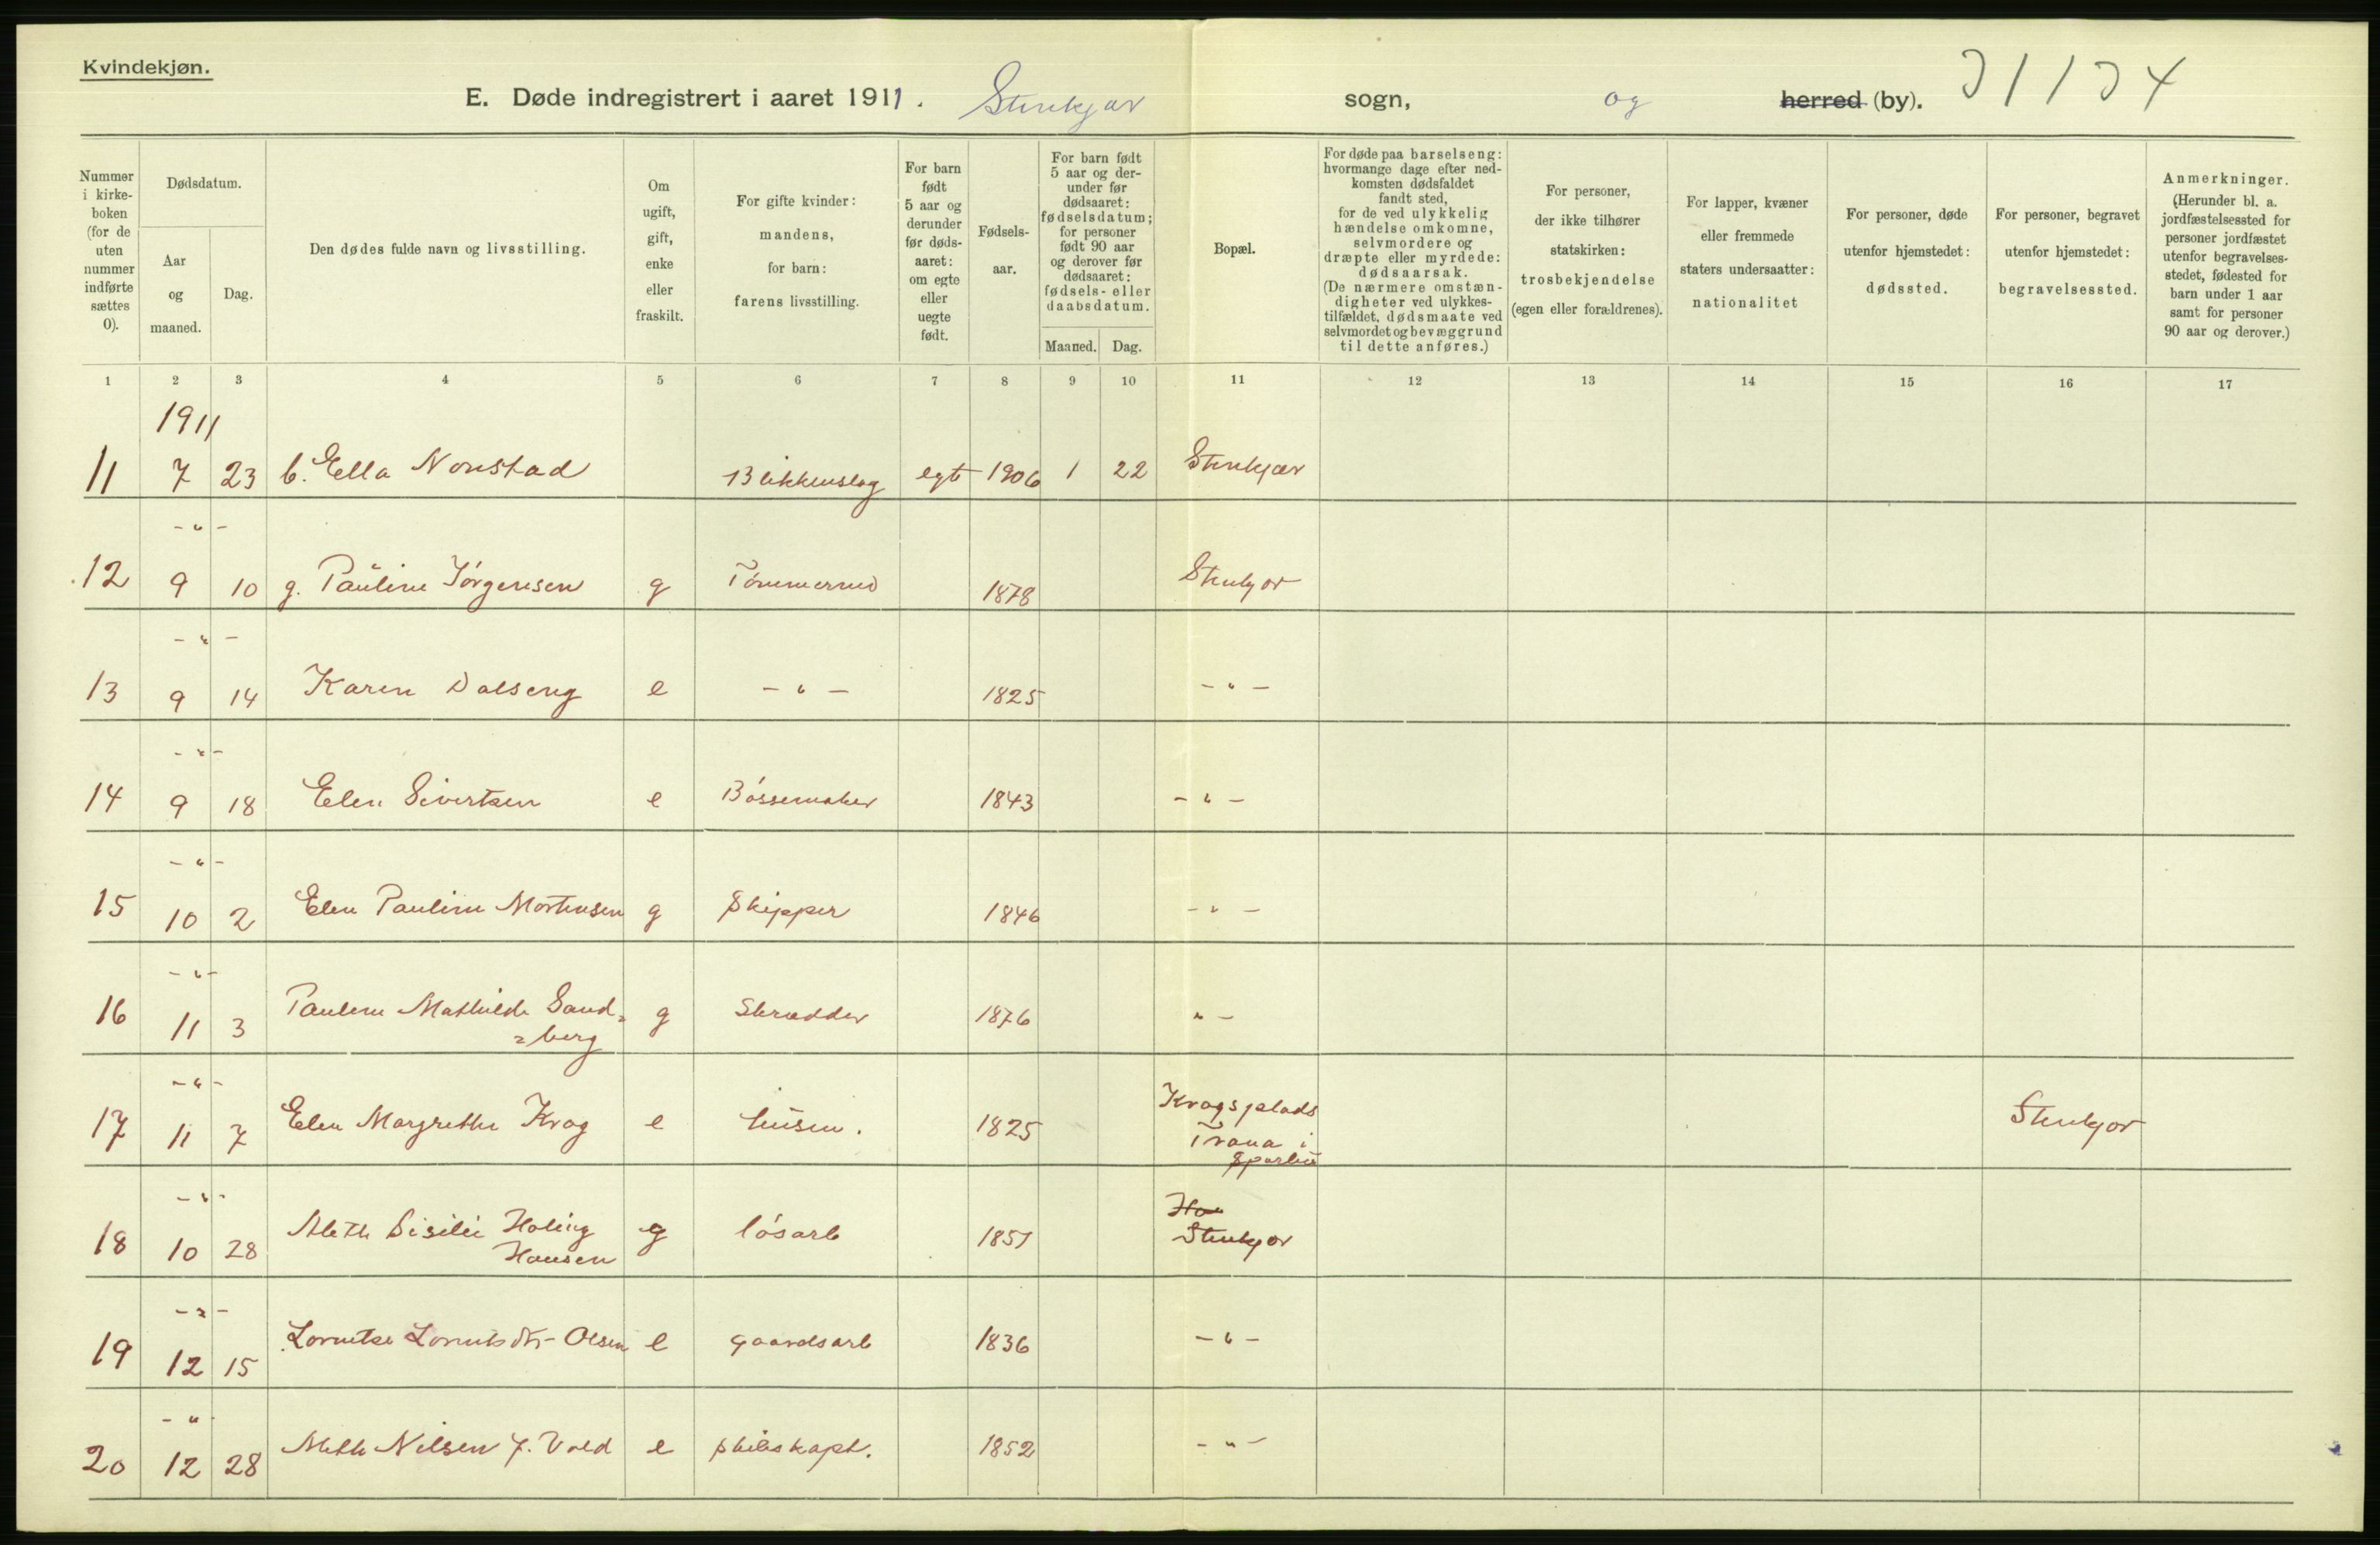 Kvindekjøn.
E. Døde indregistrert i aaret 1911. Stenkjær sogn, og herred (by).
Nummer i kirkeboken (for de uten nummer indførte sættes 0).
Dødsdatum.
Aar og maaned.
Dag.
Den dødes fulde navn og livsstilling.
Om ugift, gift, enke eller fraskilt.
For gifte kvinder: mandens, for barn: farens livsstilling.
For barn født 5 aar og derunder før dødsaaret: om egte eller uegte født.
Fødselsaar.
For barn født 5 aar og derunder før dødsaaret: fødselsdatum; for personer født 90 aar og derover før dødsaaret: fødsels- eller daabsdatum.
Maaned. Dag.
Bopæl.
For døde paa barselseng: hvormange dage efter nedkomsten dødsfaldet fandt sted, for de ved ulykkelig hændelse omkomne, selvmordere og dræpte eller myrdede: dødsaarsak. (De nærmere omstændigheter ved ulykkestilfældet, dødsmaate ved selvmordet og bevæggrund til dette anføres.)
For personer, der ikke tilhører statskirken: trosbekjendelse (egen eller forældrenes).
For lapper, kvæner eller fremmede staters undersaatter: nationalitet
For personer, døde utenfor hjemstedet: dødssted.
For personer, begravet utenfor hjemstedet: begravelsessted.
Anmerkninger. (Herunder bl. a. jordfæstelsessted for personer jordfæstet utenfor begravelsesstedet, fødested for barn under 1 aar samt for personer 90 aar og derover.)
1 2 3 4 5 6 7 8 9 10 11 12 13 14 15 16 17
1911
11 7 23 b. Ella Nonstad Blikkenslag egt 1906 1 22 Stenkjær
- " -
12 9 10 g. Pauline Jörgensen g Tömmermd 1878 Stenkjær
- " -
13 9 14 Karen Dalseng e - " - 1825 - " -
- " -
14 9 18 Elen Sivertsen e Bössemaker 1843 - " -
- " -
15 10 2 Elen Pauline Mortensen g Skipper 1846 - " -
- " -
16 11 3 Pauline Mathilde Sand=
=berg g Skrædder 1876 " -
- " -
17 11 7 Elen Margrethe Krog e husm. 1825 Krogsplads
Trana i
Sparbu Stenkjær
- " -
18 10 28 Meth Sisilie Holing
Hansen g lösarb 1851 Stenkjær
- " -
19 12 15 Lorntse Lorntsdtr- Olsen e gaardsarb 1836 - " -
- " -
20 12 28 Meth Nilsen f. Vold e skibskapt. 1852 - " -